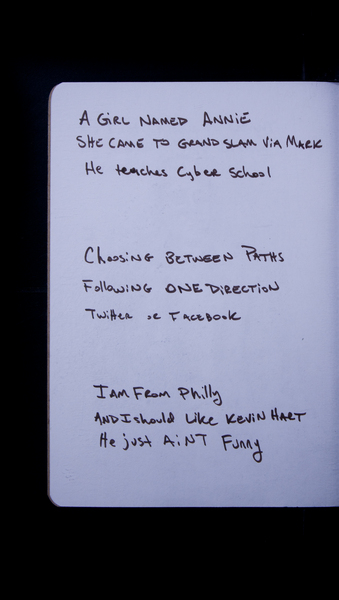 A GIRL NAMED ANNIE
SHE CAME TO GRANDSLAM VIA MARK
He teaches Cyber School
Choosing BETWEEN PATHS
Following ONE DIRECTION
Twitter or FACEBOOK
I AM FROM Philly
AND I should Like KEVIN HART
He just AiNT Funny